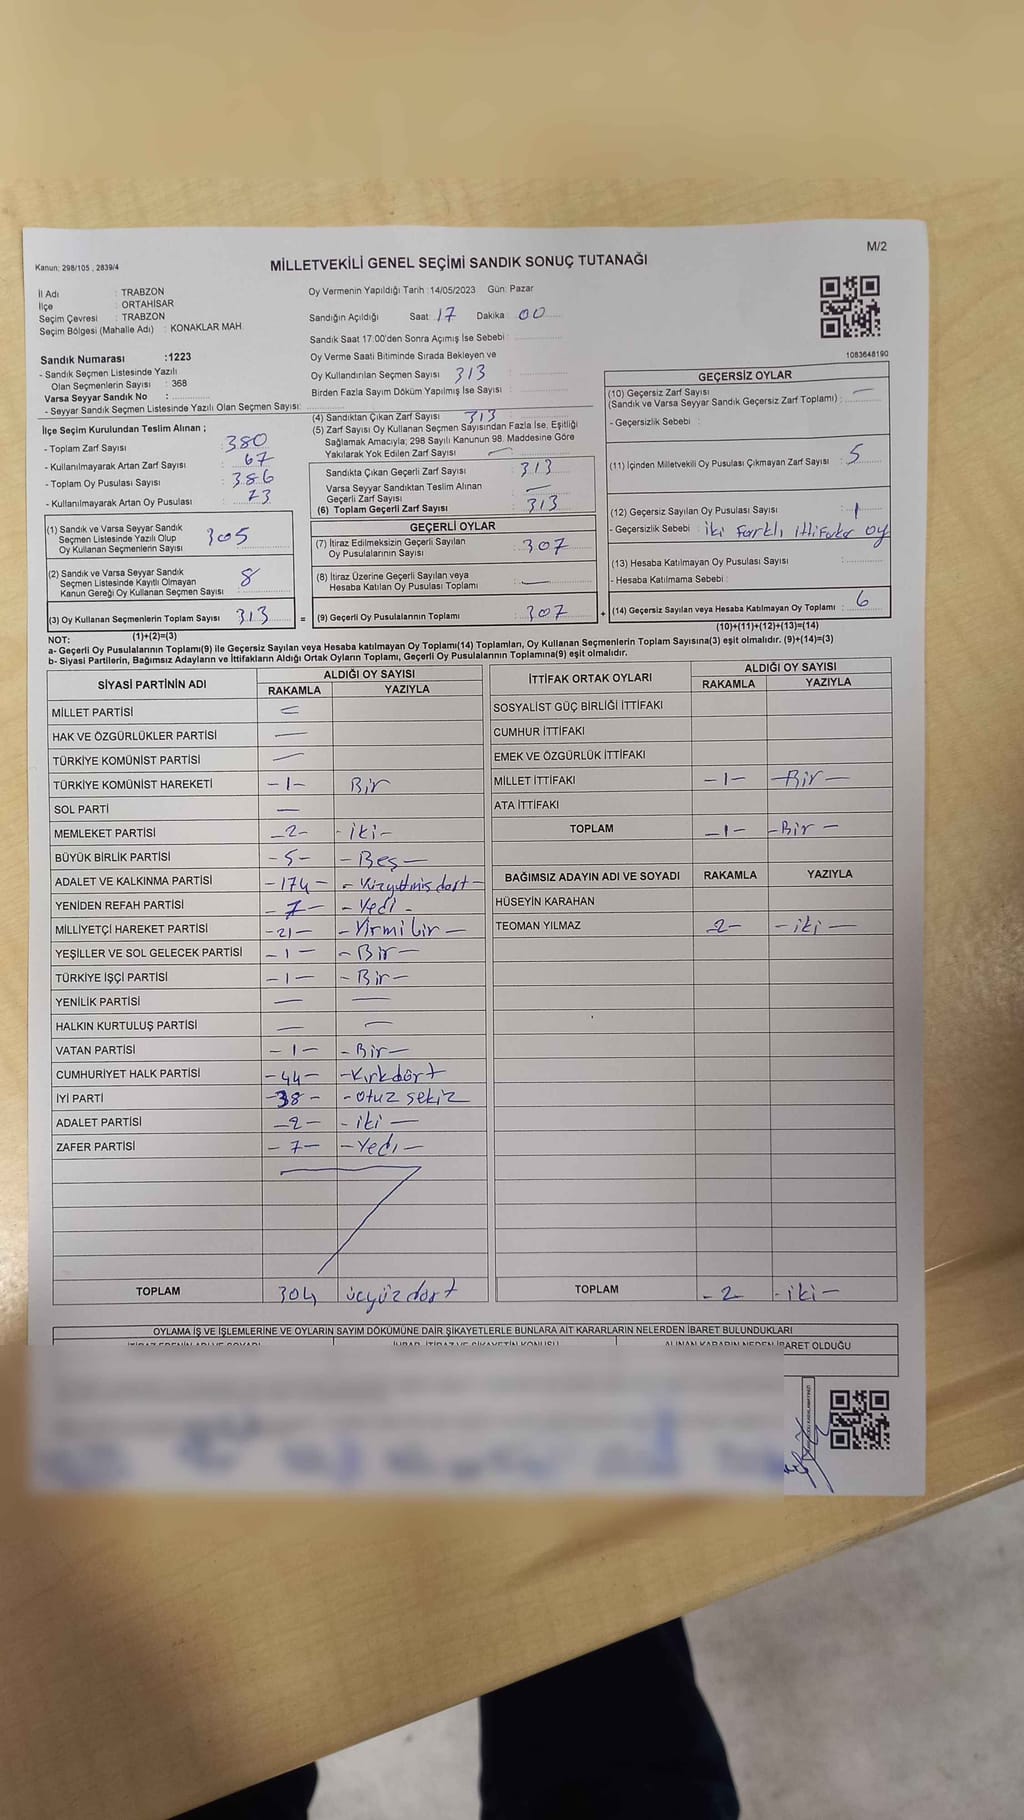 M/2
Kanun: 298/105 , 2839/4
MİLLETVEKİLİ GENEL SEÇİMİ SANDIK SONUÇ TUTANAĞI
İl Adı : TRABZON
İlçe : ORTAHİSAR
Seçim Çevresi : TRABZON
Seçim Bölgesi (Mahalle Adı) : KONAKLAR MAH.
Sandık Numarası :1223
- Sandık Seçmen Listesinde Yazılı
Olan Seçmenlerin Sayısı : 368
Varsa Seyyar Sandık No :
- Seyyar Sandık Seçmen Listesinde Yazılı Olan Seçmen Sayısı:
Oy Vermenin Yapıldığı Tarih :14/05/2023 Gün: Pazar
Sandığın Açıldığı Saat: 17 Dakika : 00
Sandık Saat 17:00'den Sonra Açımış İse Sebebi :
Oy Verme Saati Bitiminde Sırada Bekleyen ve
Oy Kullandırılan Seçmen Sayısı 313
Birden Fazla Sayım Döküm Yapılmış İse Sayısı
1083648190
İlçe Seçim Kurulundan Teslim Alınan ;
- Toplam Zarf Sayısı : 380
- Kullanılmayarak Artan Zarf Sayısı : 67
- Toplam Oy Pusulası Sayısı : 386
- Kullanılmayarak Artan Oy Pusulası : 73
(1) Sandık ve Varsa Seyyar Sandık
Seçmen Listesinde Yazılı Olup
Oy Kullanan Seçmenlerin Sayısı 305
(2) Sandık ve Varsa Seyyar Sandık
Seçmen Listesinde Kayıtlı Olmayan
Kanun Gereği Oy Kullanan Seçmen Sayısı 8
(3) Oy Kullanan Seçmenlerin Toplam Sayısı 313
(4) Sandıktan Çıkan Zarf Sayısı 313
(5) Zarf Sayısı Oy Kullanan Seçmen Sayısından Fazla İse, Eşitliği
Sağlamak Amacıyla; 298 Sayılı Kanunun 98. Maddesine Göre
Yakılarak Yok Edilen Zarf Sayısı : —
Sandıkta Çıkan Geçerli Zarf Sayısı : 313
Varsa Seyyar Sandıktan Teslim Alınan
Geçerli Zarf Sayısı : —
(6) Toplam Geçerli Zarf Sayısı : 313
GEÇERLİ OYLAR
(7) İtiraz Edilmeksizin Geçerli Sayılan
Oy Pusulalarının Sayısı : 307
(8) İtiraz Üzerine Geçerli Sayılan veya
Hesaba Katılan Oy Pusulası Toplamı : —
= (9) Geçerli Oy Pusulalarının Toplamı : 307 +
GEÇERSİZ OYLAR
(10) Geçersiz Zarf Sayısı
(Sandık ve Varsa Seyyar Sandık Geçersiz Zarf Toplamı) : —
- Geçersizlik Sebebi :
(11) İçinden Milletvekili Oy Pusulası Çıkmayan Zarf Sayısı : 5
(12) Geçersiz Sayılan Oy Pusulası Sayısı : 1
- Geçersizlik Sebebi : iki farklı ittifaka oy
(13) Hesaba Katılmayan Oy Pusulası Sayısı :
- Hesaba Katılmama Sebebi :
(14) Geçersiz Sayılan veya Hesaba Katılmayan Oy Toplamı : 6
NOT: (1)+(2)=(3) (10)+(11)+(12)+(13)=(14)
a- Geçerli Oy Pusulalarının Toplamı(9) ile Geçersiz Sayılan veya Hesaba katılmayan Oy Toplamı(14) Toplamları, Oy Kullanan Seçmenlerin Toplam Sayısına(3) eşit olmalıdır. (9)+(14)=(3)
b- Siyasi Partilerin, Bağımsız Adayların ve İttifakların Aldığı Ortak Oyların Toplamı, Geçerli Oy Pusulalarının Toplamına(9) eşit olmalıdır.
SİYASİ PARTİNİN ADI ALDIĞI OY SAYISI
RAKAMLA YAZIYLA
MİLLET PARTİSİ —
HAK VE ÖZGÜRLÜKLER PARTİSİ —
TÜRKİYE KOMÜNİST PARTİSİ —
TÜRKİYE KOMÜNİST HAREKETİ -1- Bir
SOL PARTİ —
MEMLEKET PARTİSİ -2- -iki-
BÜYÜK BİRLİK PARTİSİ -5- -Beş-
ADALET VE KALKINMA PARTİSİ -174- -Yüzyetmiş dört-
YENİDEN REFAH PARTİSİ -7- -Yedi-
MİLLİYETÇİ HAREKET PARTİSİ -21- -Yirmi bir-
YEŞİLLER VE SOL GELECEK PARTİSİ -1- -Bir-
TÜRKİYE İŞÇİ PARTİSİ -1- -Bir-
YENİLİK PARTİSİ — —
HALKIN KURTULUŞ PARTİSİ — —
VATAN PARTİSİ -1- -Bir-
CUMHURİYET HALK PARTİSİ -44- -Kırkdört
İYİ PARTİ -38- -otuz sekiz
ADALET PARTİSİ -2- -iki-
ZAFER PARTİSİ -7- -Yedi-
TOPLAM 304 üçyüz dört
İTTİFAK ORTAK OYLARI ALDIĞI OY SAYISI
RAKAMLA YAZIYLA
SOSYALİST GÜÇ BİRLİĞİ İTTİFAKI
CUMHUR İTTİFAKI
EMEK VE ÖZGÜRLÜK İTTİFAKI
MİLLET İTTİFAKI -1- -Bir-
ATA İTTİFAKI
TOPLAM -1- -Bir-
BAĞIMSIZ ADAYIN ADI VE SOYADI RAKAMLA YAZIYLA
HÜSEYİN KARAHAN
TEOMAN YILMAZ 2- -iki-
TOPLAM -2- -iki-
OYLAMA İŞ VE İŞLEMLERİNE VE OYLARIN SAYIM DÖKÜMÜNE DAİR ŞİKAYETLERLE BUNLARA AİT KARARLARIN NELERDEN İBARET BULUNDUKLARI
ALINAN KARARIN NEDEN İBARET OLDUĞU